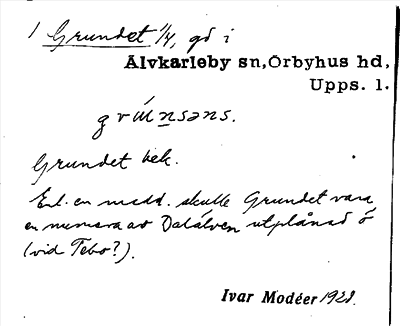 1 Grundet 1/4, gd i
Älvkarleby sn, Örbyhus hd,
Upps. l.
Grundet bek.
Enl. en medd. skulle Grundet vara
en numera av Dalälven utplånad ö
(vid Tebo?).
Ivar Modéer 1928.